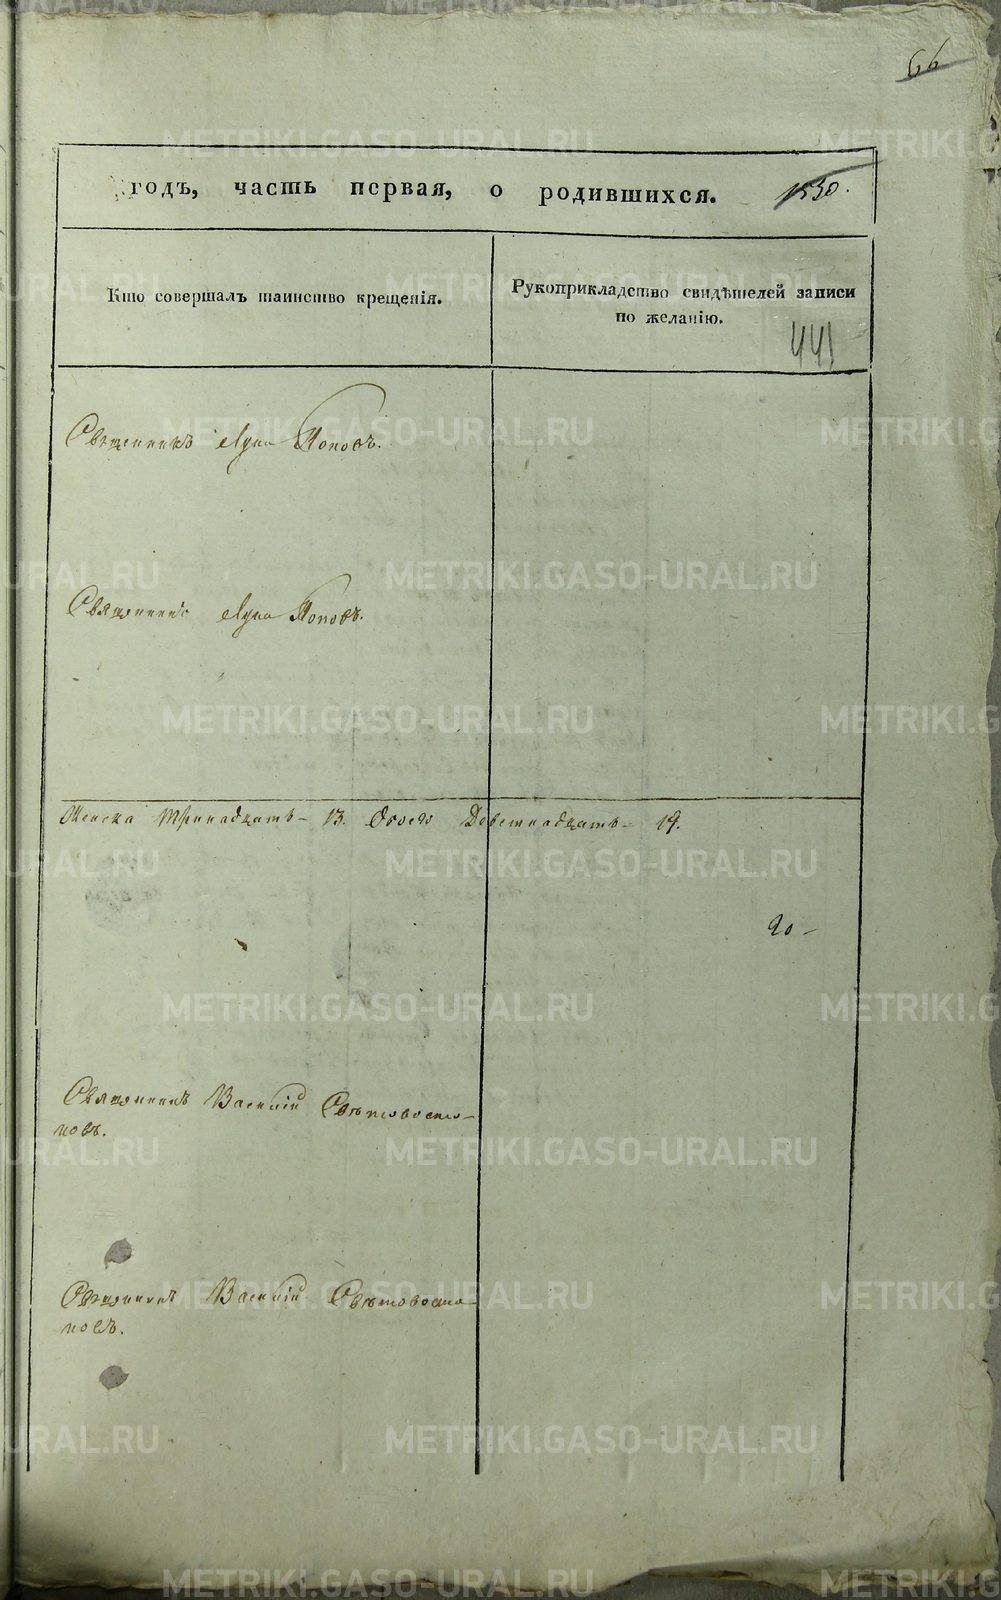 66
годъ, часть первая, о родившихся. 1530.
Кто совершалъ таинство крещенія.
Рукоприкладство свидѣтелей записи
по желанію.
441
Священникъ Лука Поповъ.
Священникъ Лука Поповъ.
Женска Тринадцать - 13. Обоего Деветнадцать - 19.
20 -
Священникъ Василій Свѣтовосто-
ковъ.
Священникъ Василій Свѣтовосто-
ковъ.
METRIKI.GASO-URAL.RU